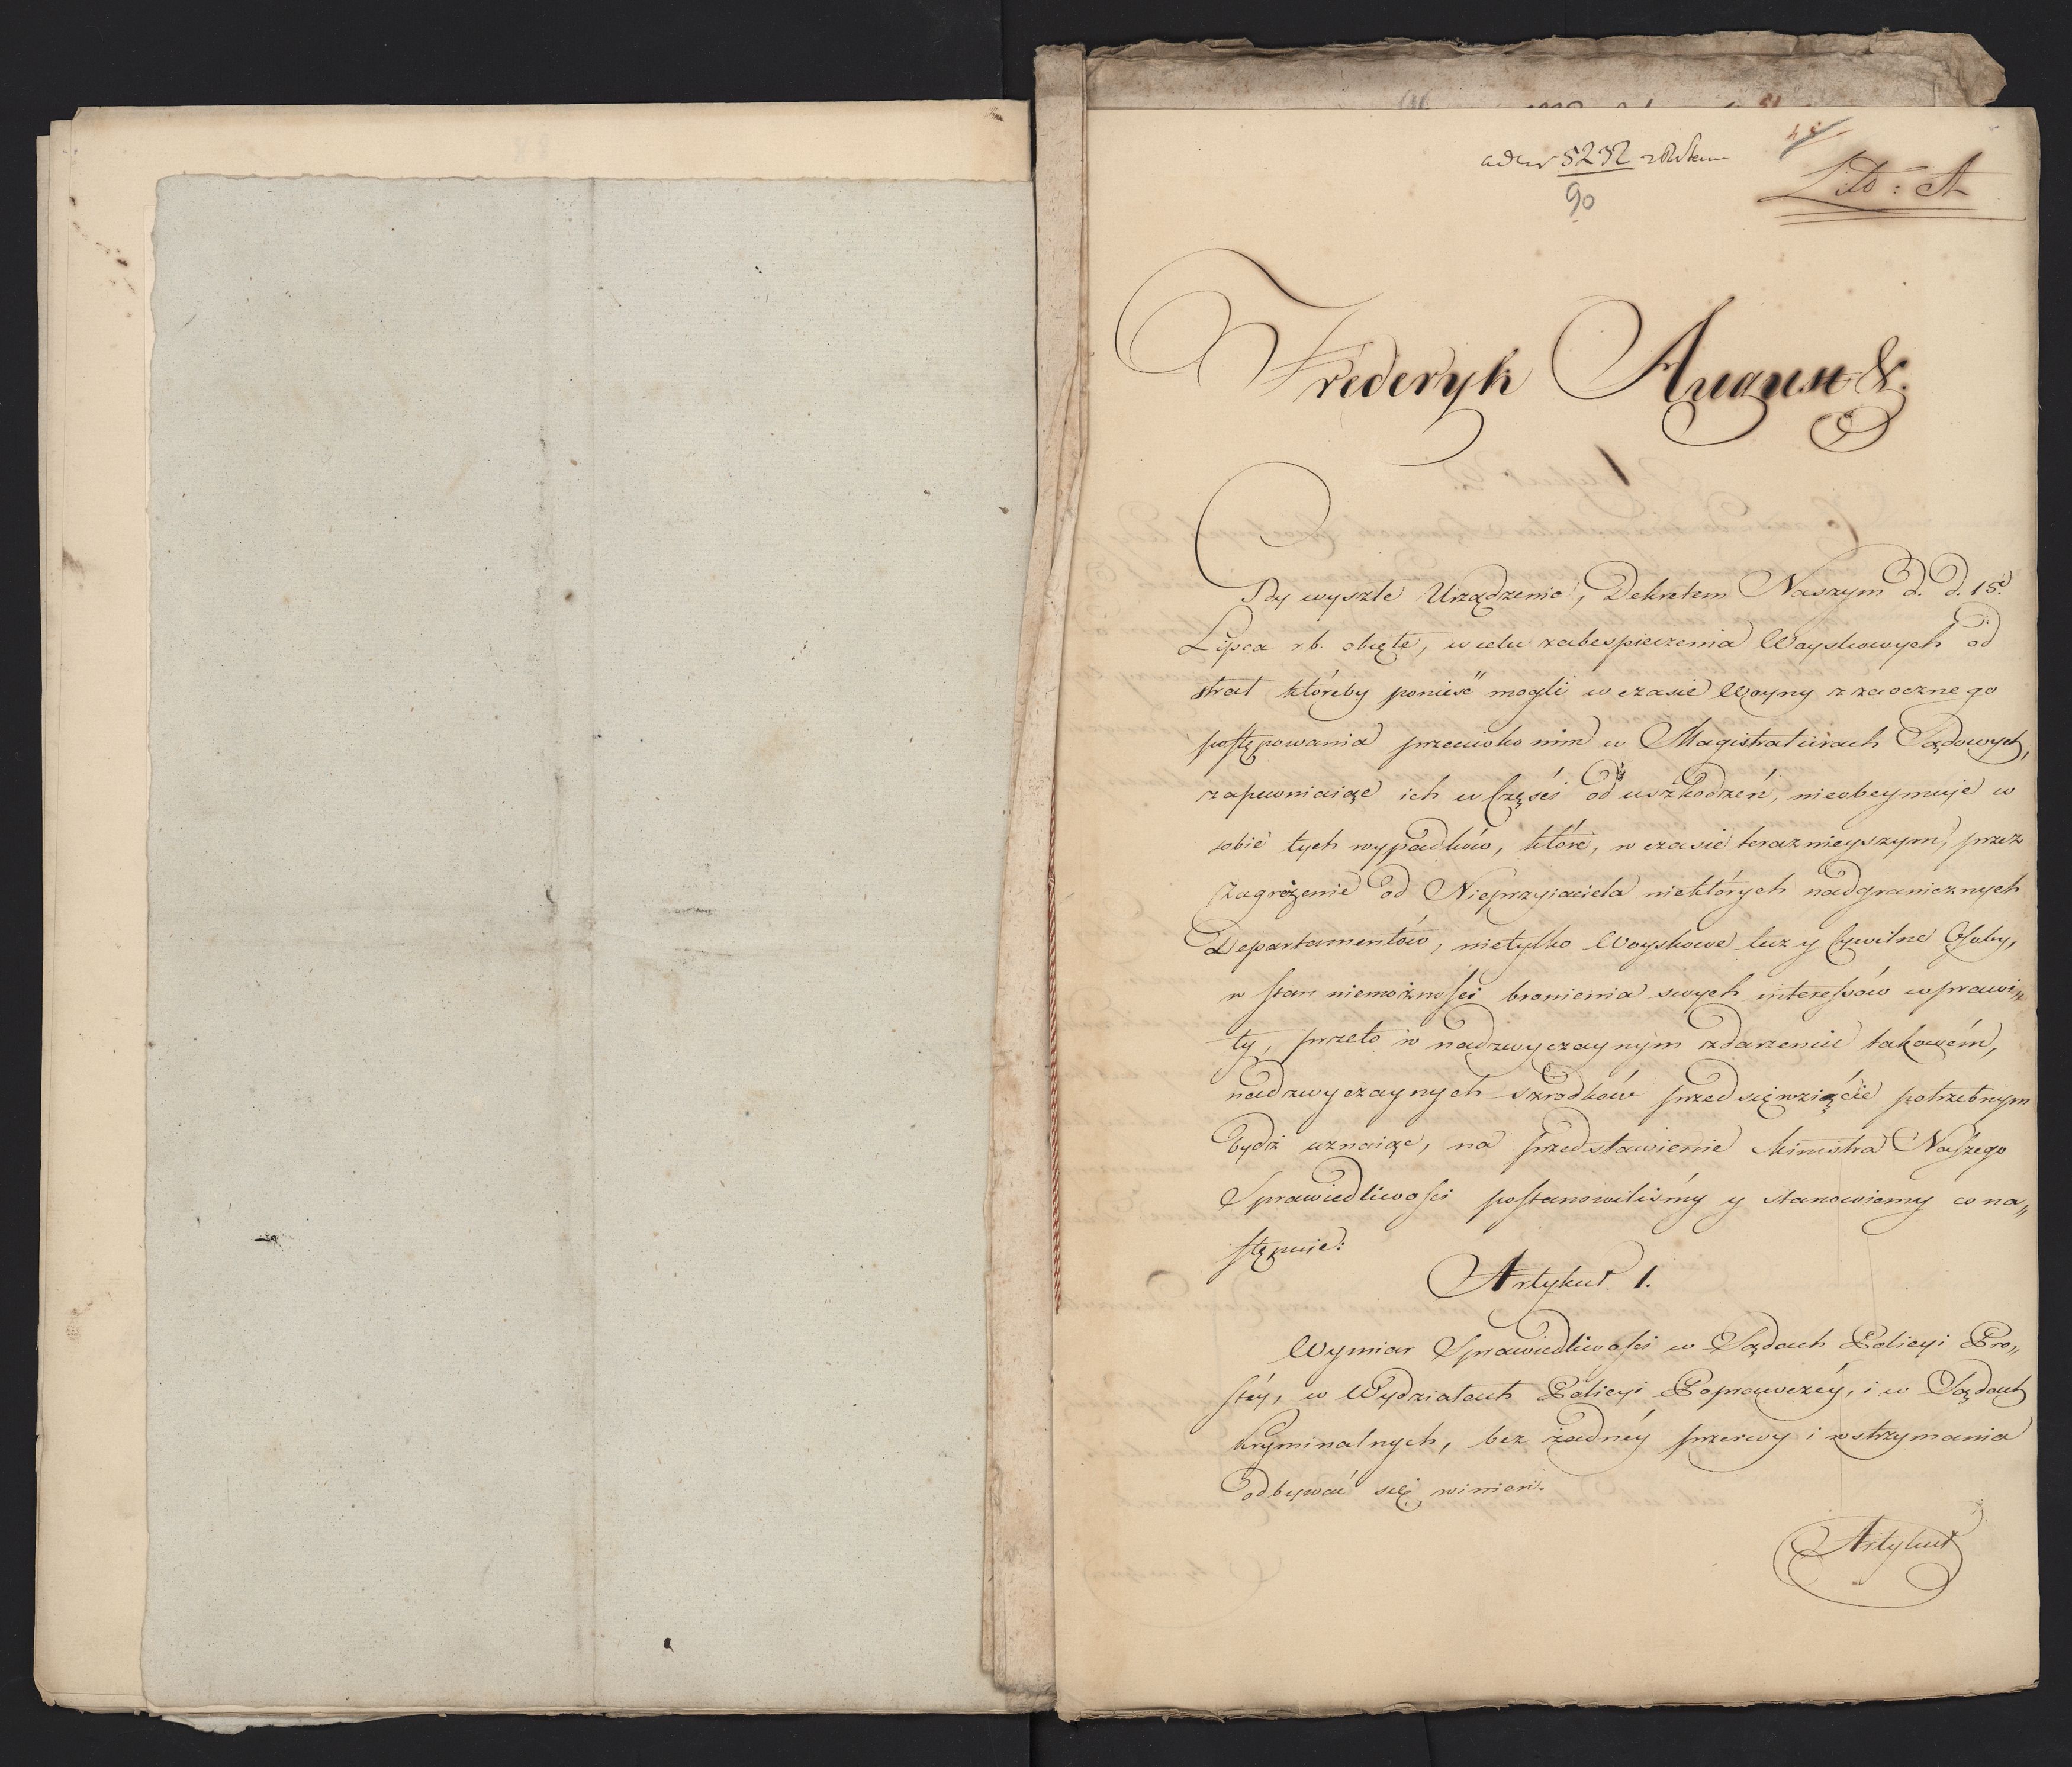 48
ad Nr 5232
90
Litt: A
Frederyk August &.
Gdy wyszłe Urządzenie, Dekretem Naszym d. d. 18.
Lipca r b. obięte, w celu zabespieczenia Woyskowych od
strat któreby ponieść mogli w czasie Woyny z zaocznego
postępowania przeciwko nim w Magistraturach Sądowych,
zapewniaiąc ich w Części od uszkodzeń, nieobeymuje w
sobie tych wypadków, które, w czasie teraznieyszym, przez
Zagrożenie od Nieprzyiaciela niektórych nadgranicznych
Departamentów, nietylko Woyskowe lecz y Cywilne Osoby,
w stan niemożności bronienia swych interessów wprawi„
ły, przeto w nadzwyczaynym zdarzeniu takowém,
nadzwyczaynych szrodków przedsięwzięcie potrzebnym
bydź uznaiąc, na przedstawienie Ministra Naszego
Sprawiedliwości postanowiliśmy y stanowiemy co na„
stępuie:
Artykuł 1.
Wymiar Sprawiedliwości w Sądach Policyi Pro„
stéy, w Wydziałach Policyi Poprawczéy, i w Sądach
Kryminalnych, bez żadnéy przerwy i wstrzymania
odbywać się winien.
Artykuł